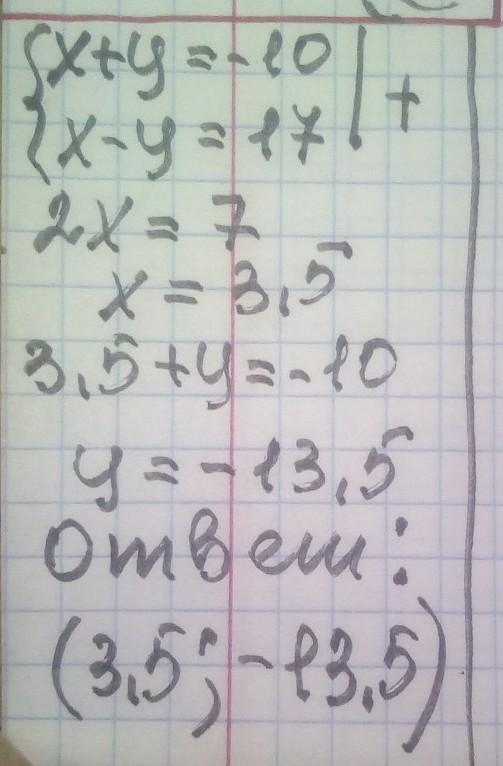 {x+y=-10 | +
{x-y=17 |
2x=7
x=3,5
3,5+y=-10
y=-13,5
Ответ:
(3,5; -13,5)